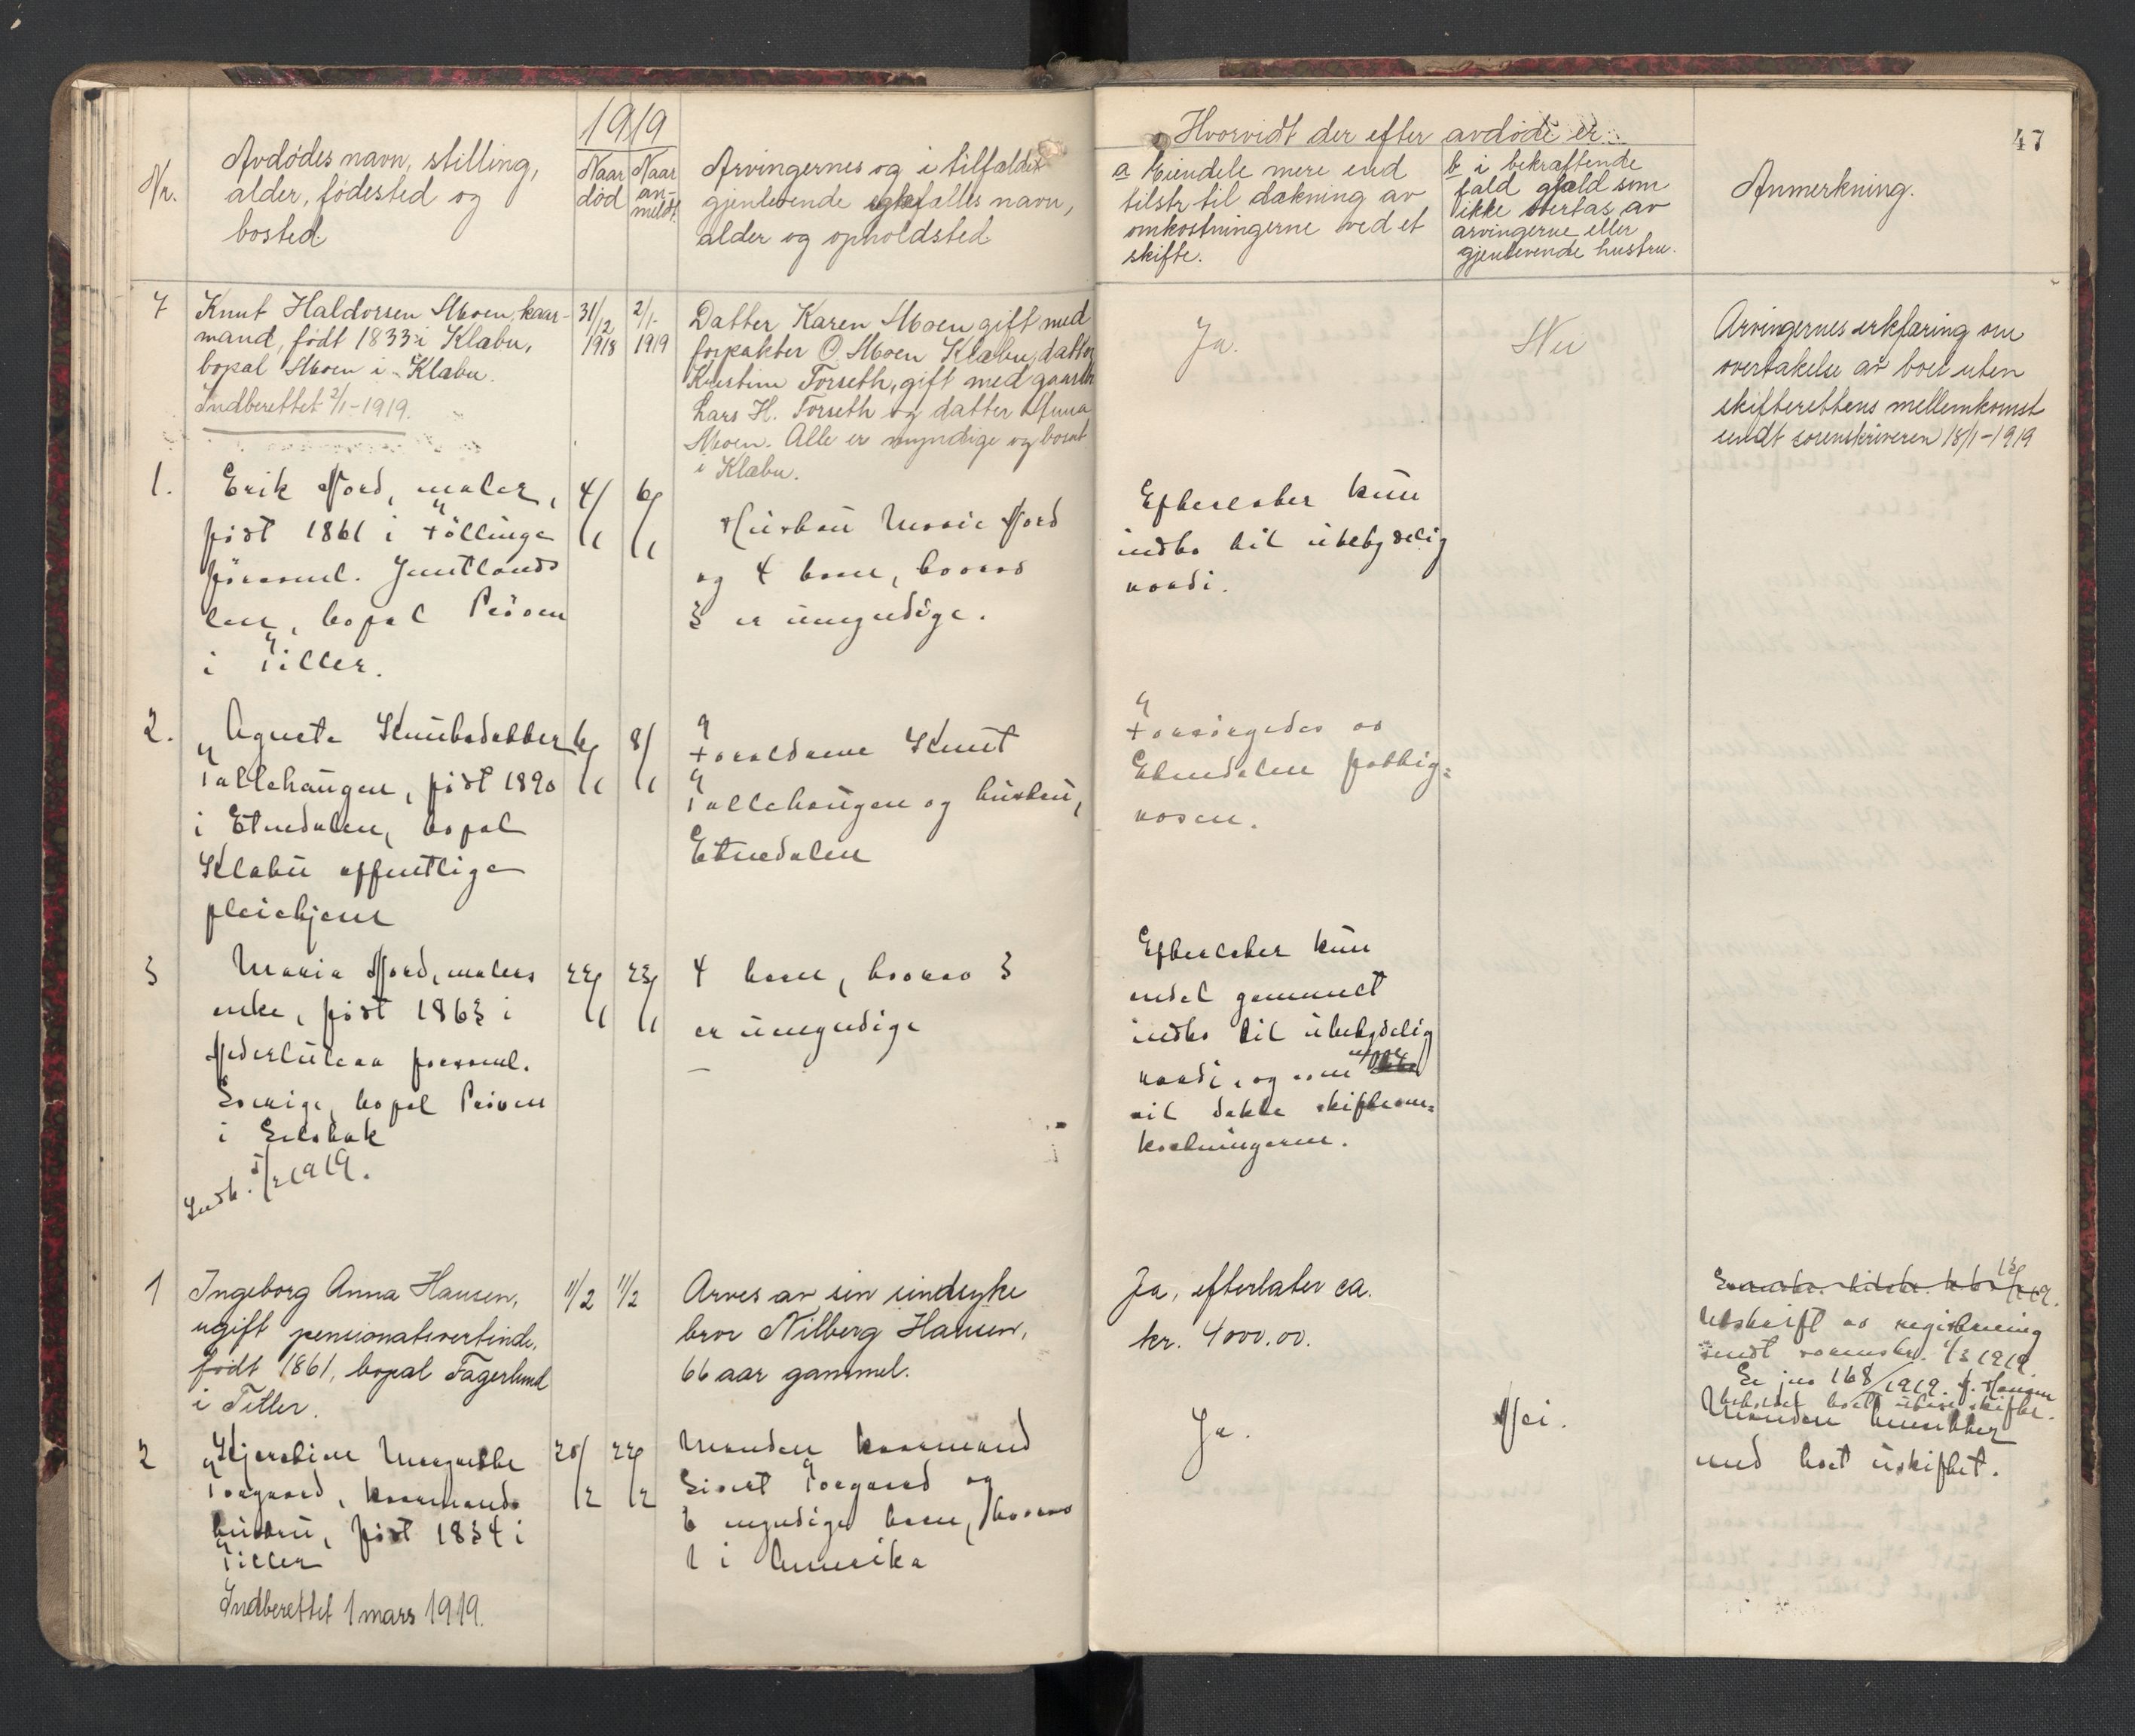 1919
Nr.
Avdødes navn, stilling,
alder, fødested og
bosted.
Naar
død
Naar
an-
meldt.
Arvingernes og i tilfældet
gjenlevende egtefælles navn,
alder og opholdsted
Hvorvidt der efter avdøde er:
a Eiendele mere end
tilstr. til dækning av
omkostningerne ved et
skifte.
b i bekræftende
fald gjæld som
ikke overtas av
arvingerne eller
gjenlevende hustru.
Anmerkning.
47
7
Knut Haldorsen Moen, kaar-
mand, født 1833 i Klæbu,
bopæl Moen i Klæbu.
Indberettet 2/1-1919.
31/12
1918
2/1-
1919
Datter Karen Moen gift med
forpakter O. Moen Klæbu, datter
Kristine Forseth, gift med gaardbr
Lars H. Forseth og datter Anna
Moen. Alle er myndige og bosat
i Klæbu.
Ja.
Nei
Arvingernes erklæring om
overtakelse av boet uten
skifterettens mellemkomst
sendt sorenskriveren 18/1-1919
1.
Erik Nord, maler,
født 1861 i Föllinge
församl. Jemtlands
len, bopæl Røsen
i Tiller.
4/1
6/1
Hustru Marie Nord
og 4 barn, hvorav
3 er umyndige.
Efterlater kun
indbo til ubetydelig
værdi.
2.
Agnete Knutsdatter
Tallehaugen, født 1890
i Etnedalen, bopæl
Klæbu offentlige
pleiehjem
6/1
8/1
Forældrene Knut
Tallehaugen og hustru,
Etnedalen
Forsørgedes av
Etnedalen fattig=
væsen.
3
Maria Nord, malers
enke, født 1863 i
Nederluleaa forsaml.
Sverige, bopæl Røsen
i Selsbak
Indb. 5/2 1919.
22/1
23/1
4 barn, hvorav 3
er umyndige
Efterlater kun
endel gammelt
indbo til ubetydelig
værdi, og som neppe
vil dække skifteom=
kostningerne.
1
Ingeborg Anna Hansen,
ugift pensionatsvertinde,
født 1861, bopæl Fagerlund
i Tiller.
11/2
11/2
Arves av sin sindsyke
bror Nilberg Hansen,
66 aar gammel.
Ja, efterlater ca.
kr. 4000.00.
Utskrift av registrering
sendt sorenskr. 1/3 1919.
Se jno 168/1919. f. Hansen
beholder boet uten skifte.
2
Kjerstine Margrethe
Torgaard, kaarmands
hustru, født 1834 i
Tiller
Indberettet 1 mars 1919.
20/2
22/2
Manden kaarmand
Sivert Torgaard og
6 myndige barn, hvorav
1 i Amerika
Ja.
Nei.
Manden hensitter
med boet uskiftet.